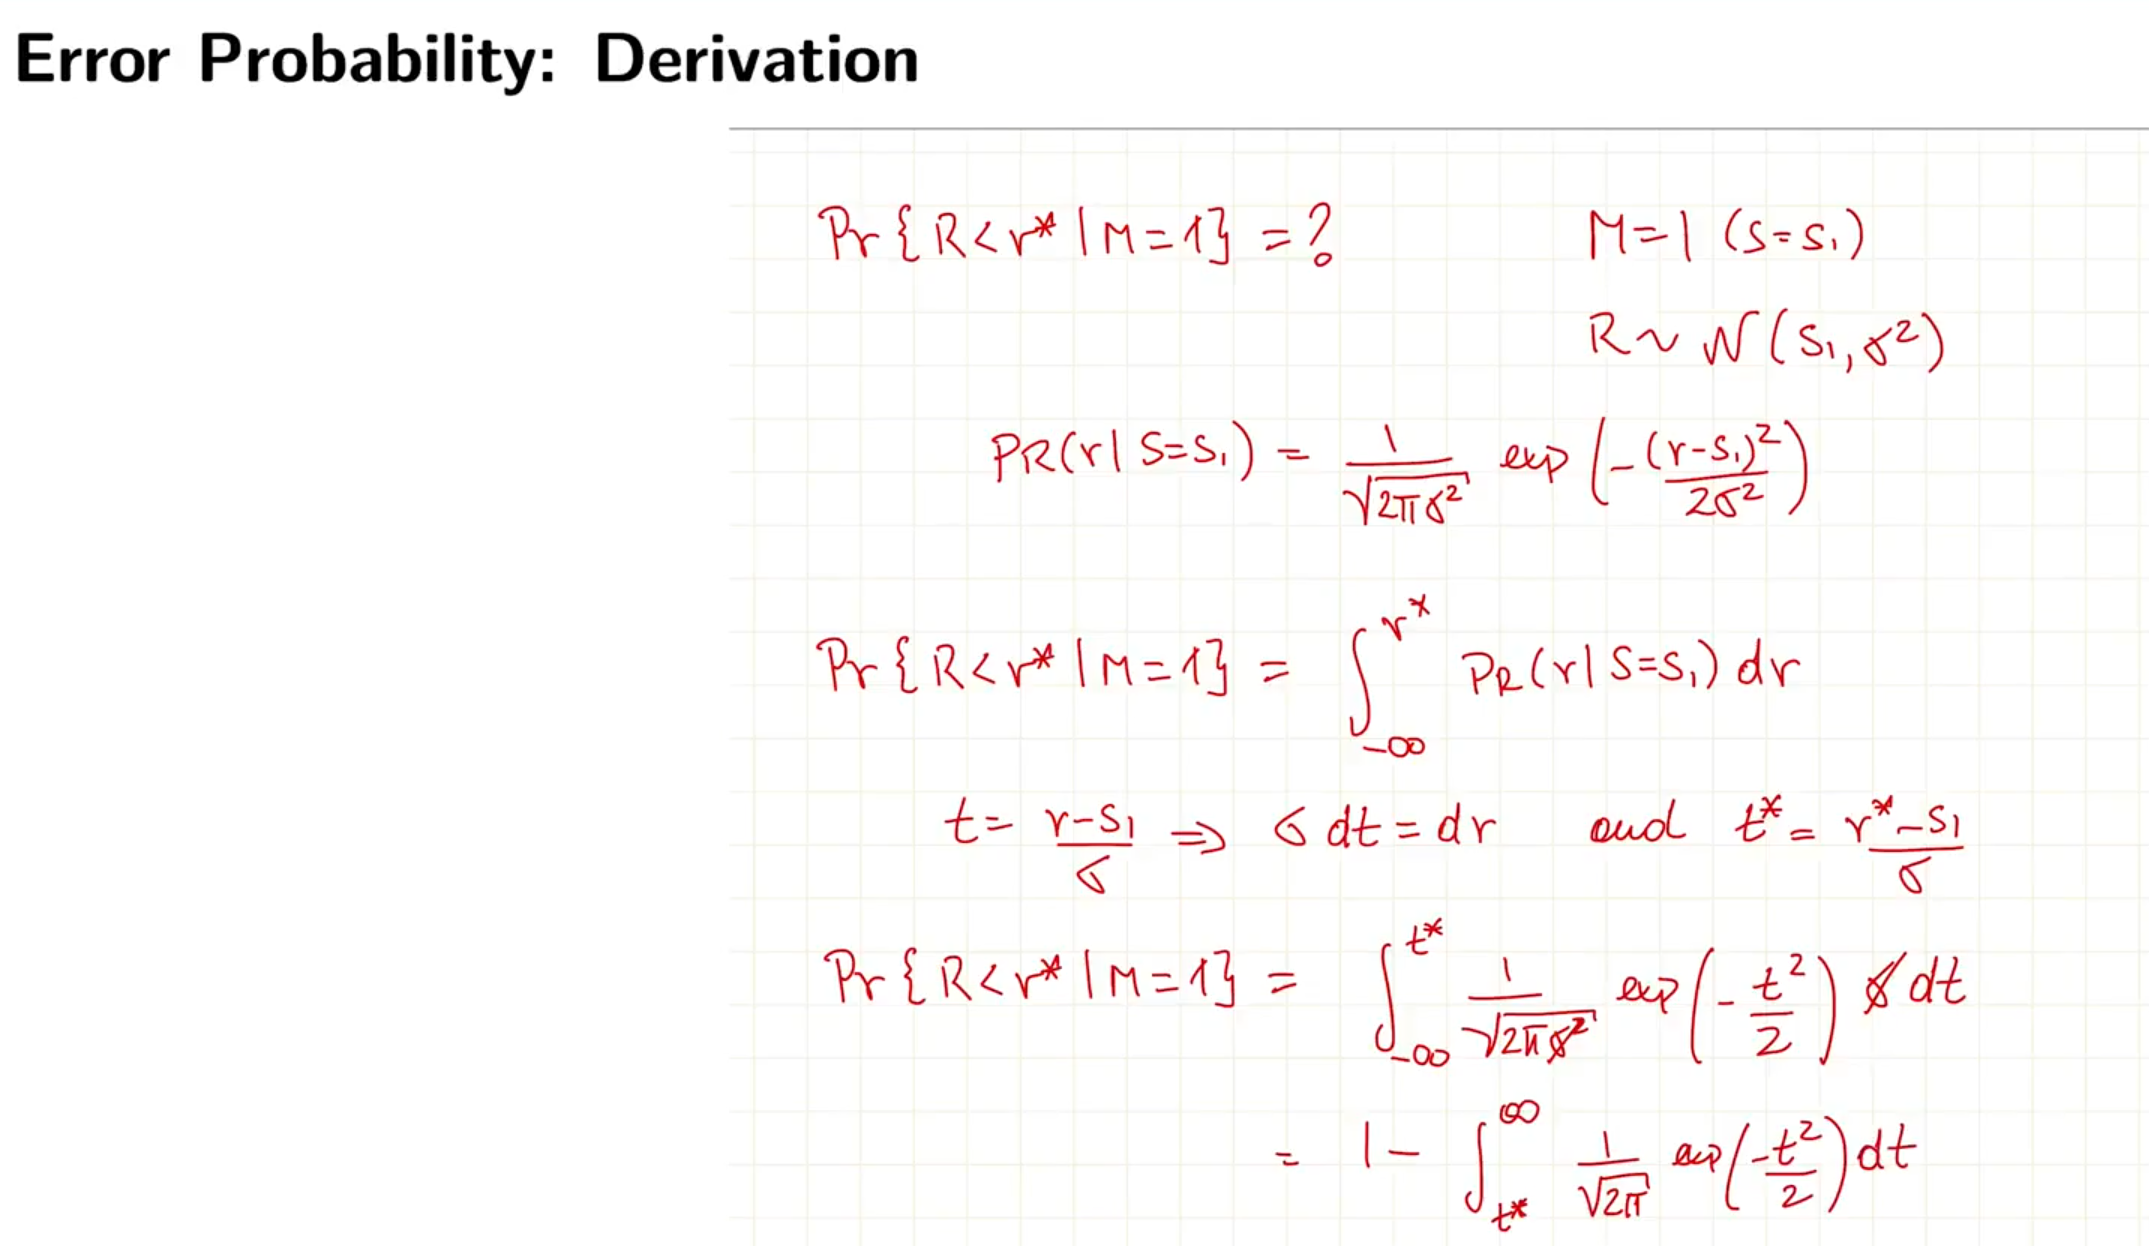 Error Probability: Derivation
Pr{R<r* | M=1} =? M=1 (S=S₁)
R ~ N(S₁, σ²)
PR(r | S=S₁) = 1/√(2πσ²) exp(-(r-S₁)²/2σ²)
Pr{R<r* | M=1} = ∫_{-∞}^{r*} PR(r | S=S₁) dr
t = (r-S₁)/σ ⇒ σ dt = dr and t* = (r*-S₁)/σ
Pr{R<r* | M=1} = ∫_{-∞}^{t*} 1/√(2πσ²) exp(-t²/2) σ dt
= 1 - ∫_{t*}^{∞} 1/√(2π) exp(-t²/2) dt